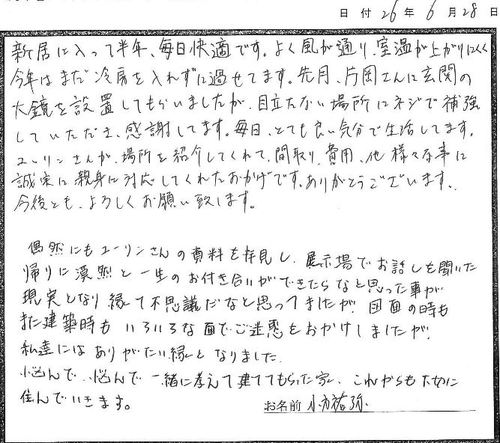 日付 26年 6月 28日
新居に入って半年、毎日快適です。よく風が通り、室温が上がりにくく
今年はまだ冷房を入れずに過せてます。先月、片岡さんに玄関の
大鏡を設置してもらいましたが、目立たない場所にネジで補強
していただき、感謝してます。毎日、とても良い気分で生活してます。
ユーリンさんが、場所を紹介してくれて、間取り、費用、他様々な事に
誠実に親身に対応してくれたおかげです。ありがとうございます、
今後とも、よろしくお願い致します。
偶然にもユーリンさんの資料を拝見し、展示場でお話しを聞いた
帰りに漠然と一生のお付き合いができたらなと思った事が
現実となり縁って不思議だなと思ってましたが、図面の時も
また建築時もいろいろな面でご迷惑をおかけしましたが、
私達にはありがたい縁となりました。
悩んで、悩んで一緒に考えて建ててもらった家、これからも大切に
住んでいきます。
お名前 小方祐弥